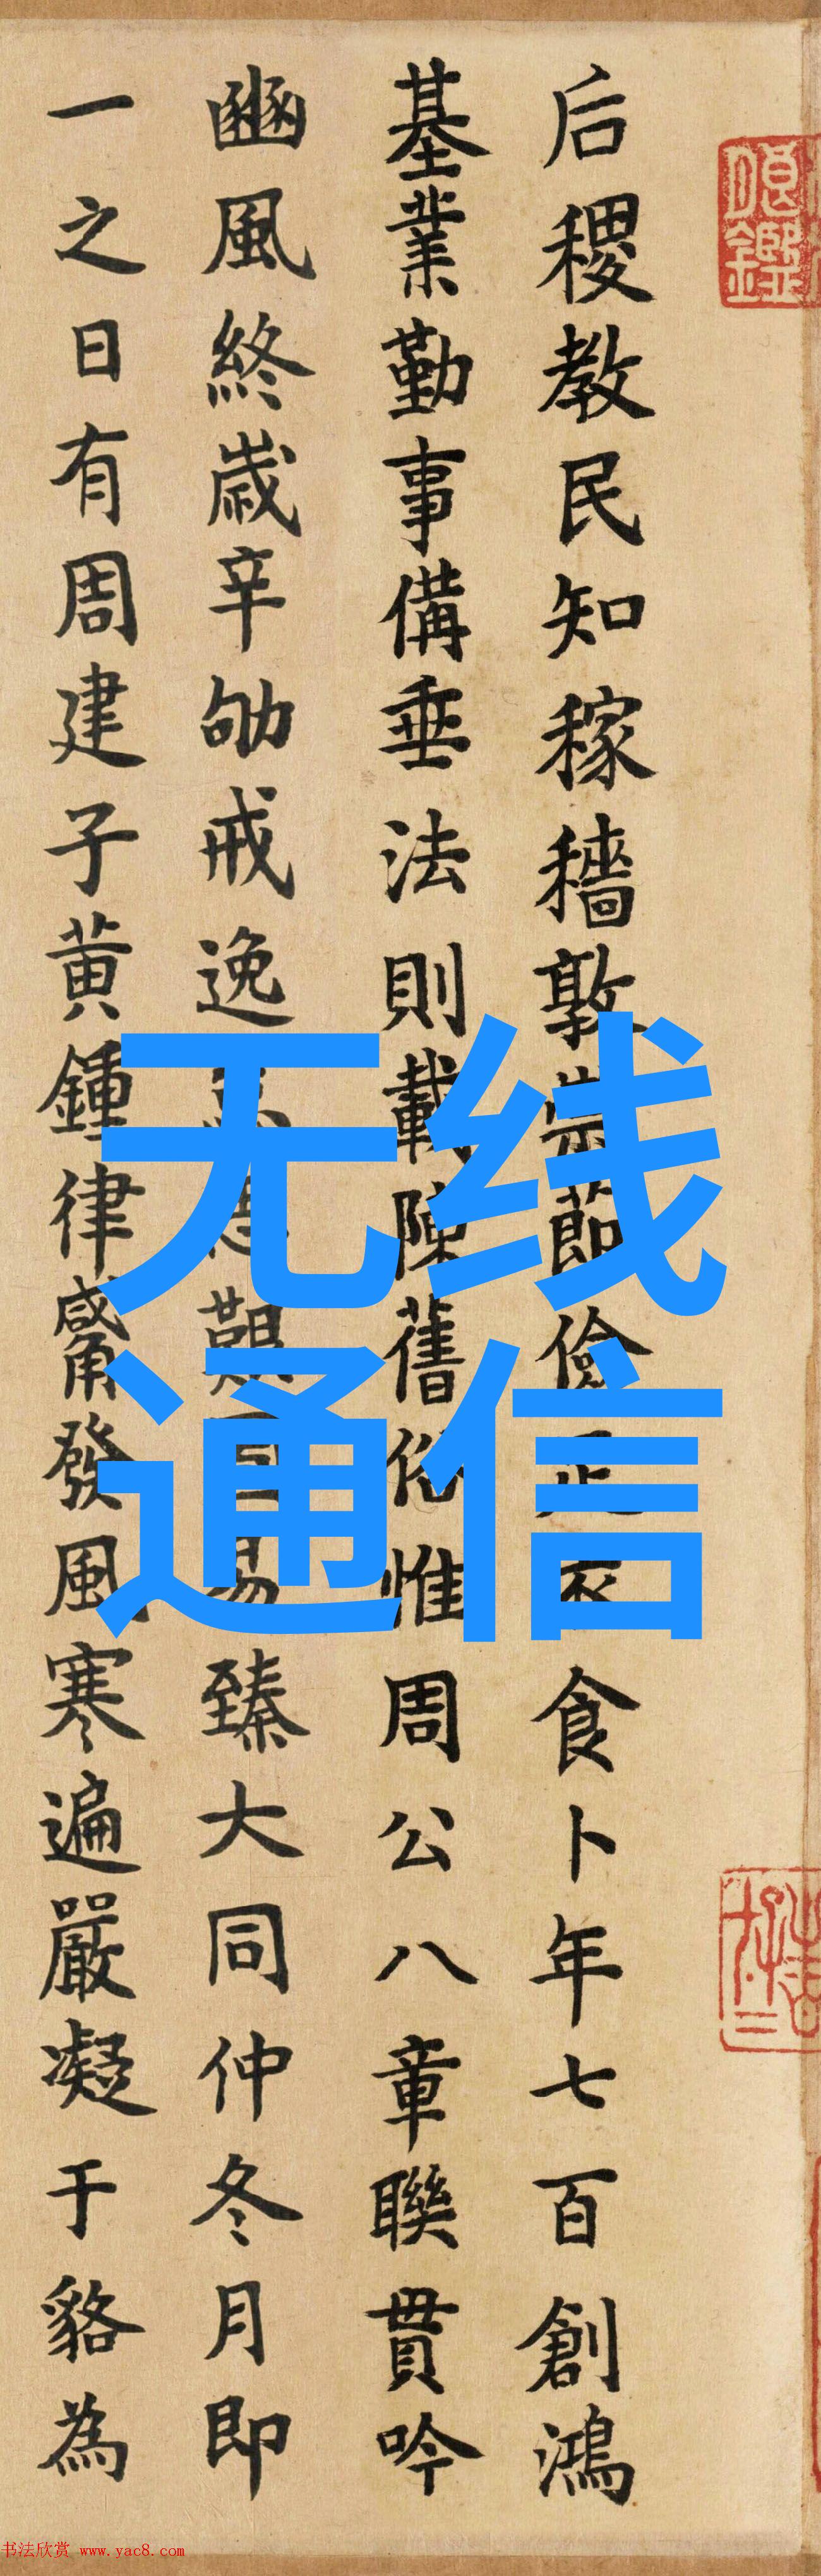 后稷教民知稼穡敦崇節儉足衣食卜年七百創鴻
基業勤事備垂法則載陳舊俗惟周公八章聯貫吟
豳風終歲辛劬戒逸臻大同仲冬月即
一之日有周建子黃鍾律觱發風寒遍嚴凝于貉為
无线
通信
书法欣赏 www.yac8.com